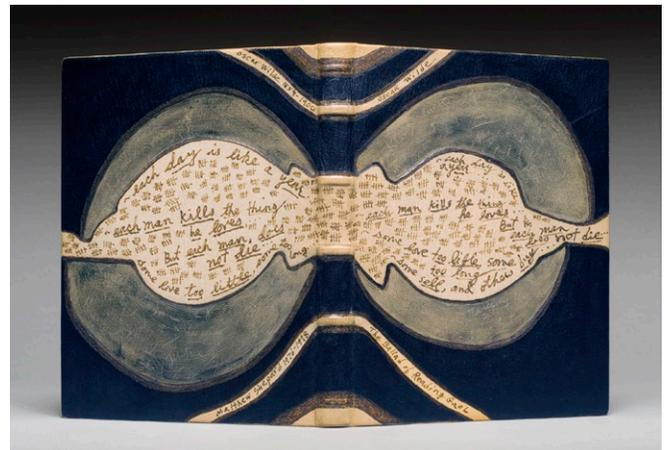 oscar wilde
oscar wilde
each day is like a year
each man kills the thing
he loves
But each man does
not die
some love too little, some too long
each day is like
a year
each man kills the thing
he loves
But
each man
does not die
some love too little some
too long
self, and others
Matthew Shepard
The Ballad of Reading Gaol